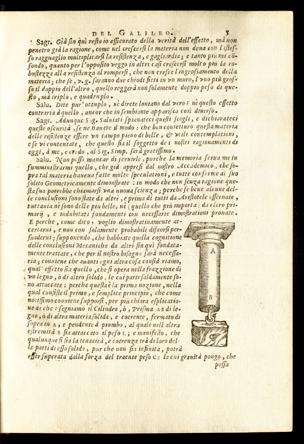 DEL GALILEO. 3
Sagr. Già sin quì resto io assicurato della verità dell'effetto, mà non
penetro già la ragione, come nel crescersi la materia non deva con l'istes-
so ragguaglio multiplicarsi la resistenza, e gagliardia; e tanto più mi con-
fondo, quanto per l'opposito veggo in altri casi crescersi molto più la ro-
bustezza alla resistenza al rompersi, che non cresce l'ingrossamento della
materia; che se, v. g. saranno due chiodi fitti in un muro, l'uno più gros-
so il doppio dell'altro, quello reggerà non solamente doppio peso di que-
sto, mà triplo, e quadruplo.
Salu. Dite pur' ottuplo, nè direte lontano dal vero: nè questo effetto
contraria à quello, ancor che in sembiante apparisca così diverso.
Sagr. Adunque Sig. Salviati spianateci questi scogli, e dichiarateci
queste oscurità, se ne havete il modo: che ben conietturo questa materia
delle resistenze essere un campo pieno di belle, & utili contemplazioni,
e se vi contentate, che questo sia il soggetto de i nostri ragionamenti di
oggi, à me, e credo, al Sig. Simp. sarà gratissimo.
Salu. Non posso mancar di servirle, purche la memoria serva me in
sumministrarmi quello, che già appresi dal nostro Academico, che so-
pra tal materia haveva fatte molte speculazioni, e tutte conforme al suo
solito Geometricamente dimostrate: in modo che non senza ragione que-
sta sua potrebbe chiamarsi una nuova scienza; perche se bene alcune del-
le conclusioni sono state da altri, e prima di tutti da Aristotele osservate,
tuttavia ne sono delle più belle, nè (quello che più importa) da i loro pri-
marij, e indubitati fondamenti con necessarie dimostrazioni provate.
E perche, come dico, voglio dimostrativamente ac-
certarvi, e non con solamente probabili discorsi per-
suadervi; supponendo, che habbiate quella cognizione
delle conclusioni Mecaniche da altri sin quì fondata-
mente trattate, che per il nostro bisogno sarà necessa-
ria; conviene che avanti ogni altra cosa consideriamo,
qual' effetto sia quello, che si opera nella frazzione di
un legno, ò di altro solido, le cui parti saldamente so-
no attaccate; perche questa è la prima nozione, nella
qual consiste il primo, e semplice principio, che come
notissimo conviene supporsi, per più chiara esplicazio-
ne di che: segniamo il Cilindro, ò, Prisma AB di le-
gno, ò di altra materia solida, e coerente, fermato di
sopra in A, e pendente à piombo, al quale nell' altra
estremità B sia attaccato il peso C; è manifesto, che
qualunque si sia la tenacità, e coerenza trà di loro del-
le parti di esso solido, pur che non sia infinita, potrà
esser superata dalla forza del traente peso C: la cui gravità pongo, che
possa
A
B
C